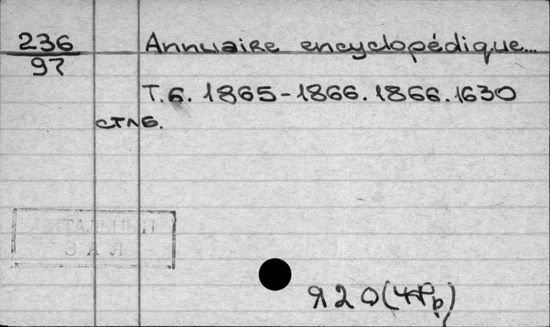 236 Annuaire encyclopédique...
97
Т.6. 1865-1866. 1866. 1630
стлб.
Я20(4Фр)